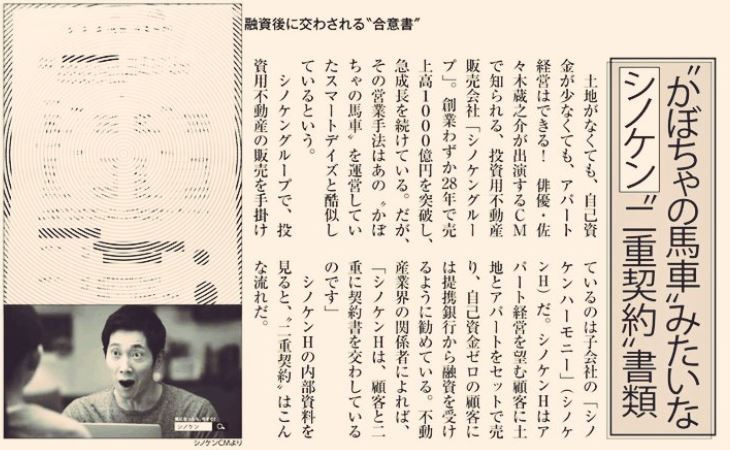 〝かぼちゃの馬車〟みたいな
シノケン〝二重契約〟書類
土地がなくても、自己資
金が少なくても、アパート
経営はできる！　俳優・佐
々木蔵之介が出演するCM
で知られる、投資用不動産
販売会社「シノケングルー
プ」。創業わずか28年で売
上高1000億円を突破し、
急成長を続けている。だが、
その営業手法はあの〝かぼ
ちゃの馬車〟を運営してい
たスマートデイズと酷似し
ているという。
シノケングループで、投
資用不動産の販売を手掛け
ているのは子会社の「シノ
ケンハーモニー」（シノケ
ンH）だ。シノケンHはア
パート経営を望む顧客に土
地とアパートをセットで売
り、自己資金ゼロの顧客に
は提携銀行から融資を受け
るように勧めている。不動
産業界の関係者によれば、
「シノケンHは、顧客と二
重に契約書を交わしている
のです」
シノケンHの内部資料を
見ると、〝二重契約〟はこん
な流れだ。
融資後に交わされる〝合意書〟
シノケン
シノケンCMより